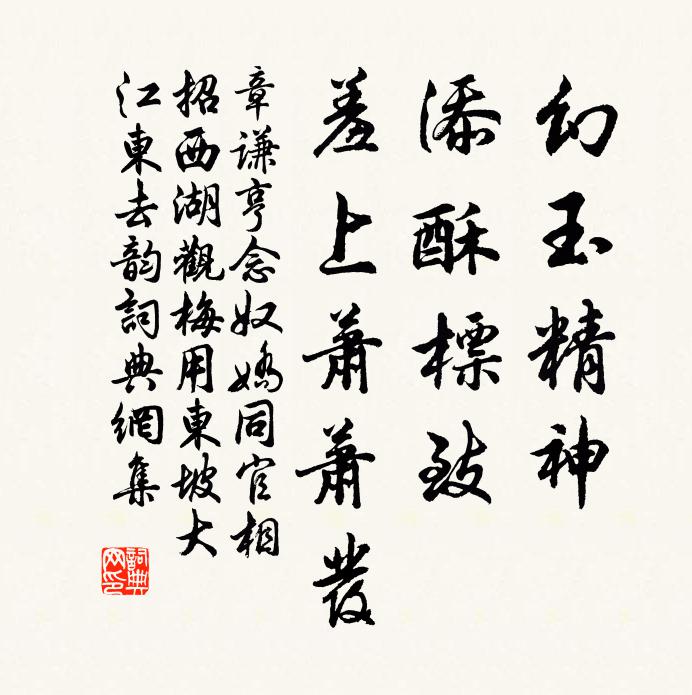 幻玉精神
添酥標致
羞上蕭蕭髮
章謙亨念奴嬌同官相
招西湖觀梅用東坡大
江東去韵詞典網集
詞典
网印